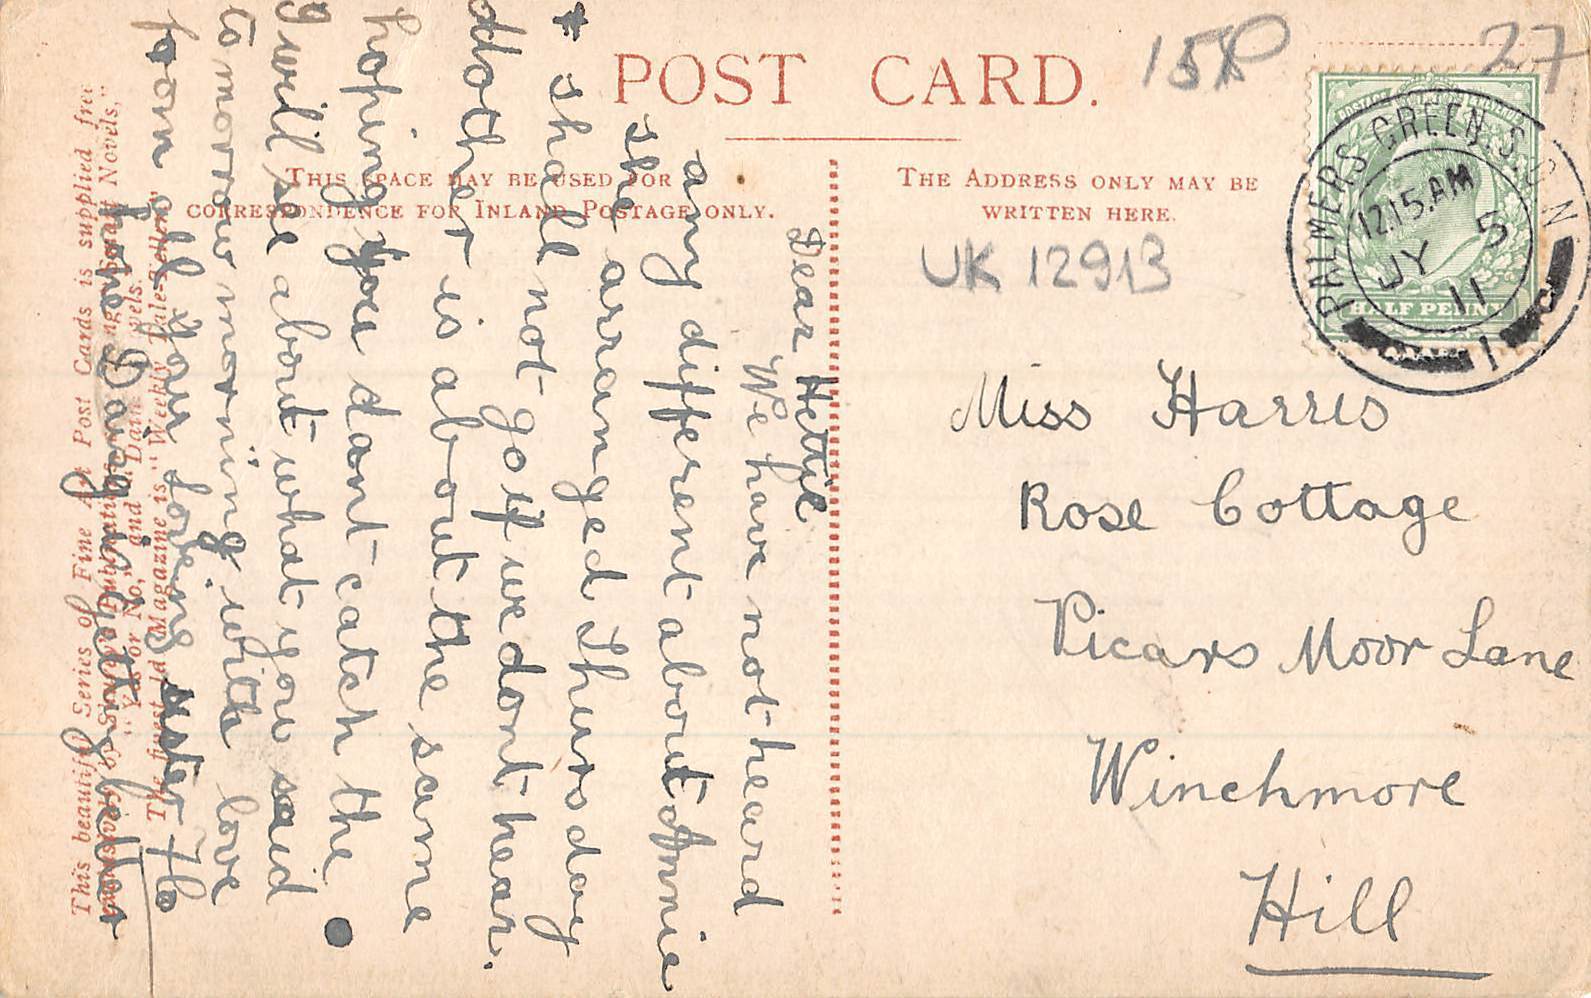 POST CARD.
THIS SPACE MAY BE USED FOR
CORRESPONDENCE FOR INLAND POSTAGE ONLY.
THE ADDRESS ONLY MAY BE
WRITTEN HERE.
15P
27
UK 12913
PALMERS GREEN. S.O. N
12.15.AM
JY 5
11
1
POSTAGE
HALF PENNY
Miss Harris
Rose Cottage
Vicars Moor Lane
Winchmore
Hill
Dear Hettie
We have not heard
any different about Annie
she arranged Thursday
shall not go if we dont hear.
dother is about the same
hoping you dont catch the
I will see about what you said
to morrow morning with love
from all your loveing sister Flo
hope Daisy is getting better
This beautiful Series of Fine Art Post Cards is supplied free
exclusively by Shurey's Publications
Smart Novels,"
"Yes or No," and "Dainty Novels."
The finest 1d. Magazine is "Weekly Tale-Teller."